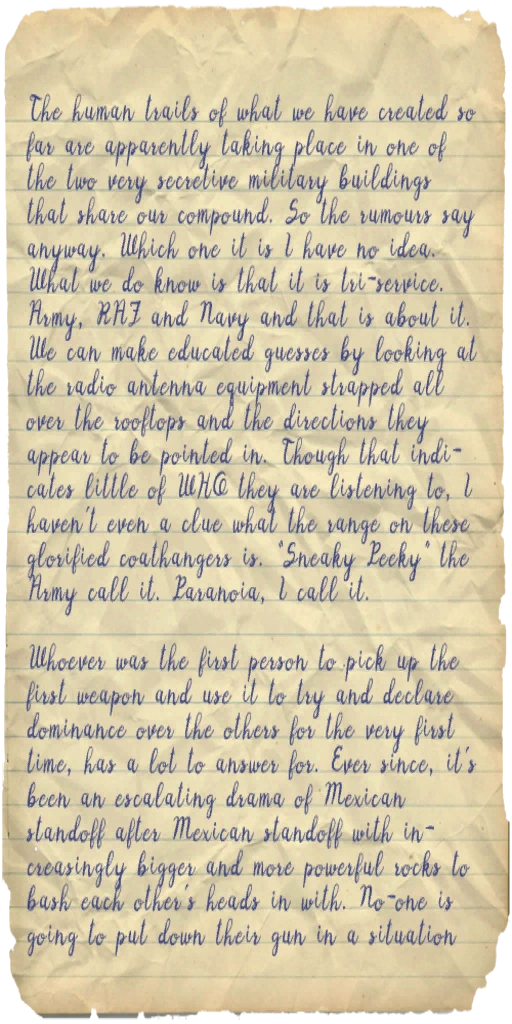 The human trails of what we have created so
far are apparently taking place in one of
the two very secretive military buildings
that share our compound. So the rumours say
anyway. Which one it is I have no idea.
What we do know is that it is tri-service.
Army, RAF and Navy and that is about it.
We can make educated guesses by looking at
the radio antenna equipment strapped all
over the rooftops and the directions they
appear to be pointed in. Though that indi-
cates little of WHO they are listening to, I
haven't even a clue what the range on these
glorified coathangers is. "Sneaky Peeky" the
Army call it. Paranoia, I call it.

Whoever was the first person to pick up the
first weapon and use it to try and declare
dominance over the others for the very first
time, has a lot to answer for. Ever since, it's
been an escalating drama of Mexican
standoff after Mexican standoff with in-
creasingly bigger and more powerful rocks to
bash each other's heads in with. No-one is
going to put down their gun in a situation